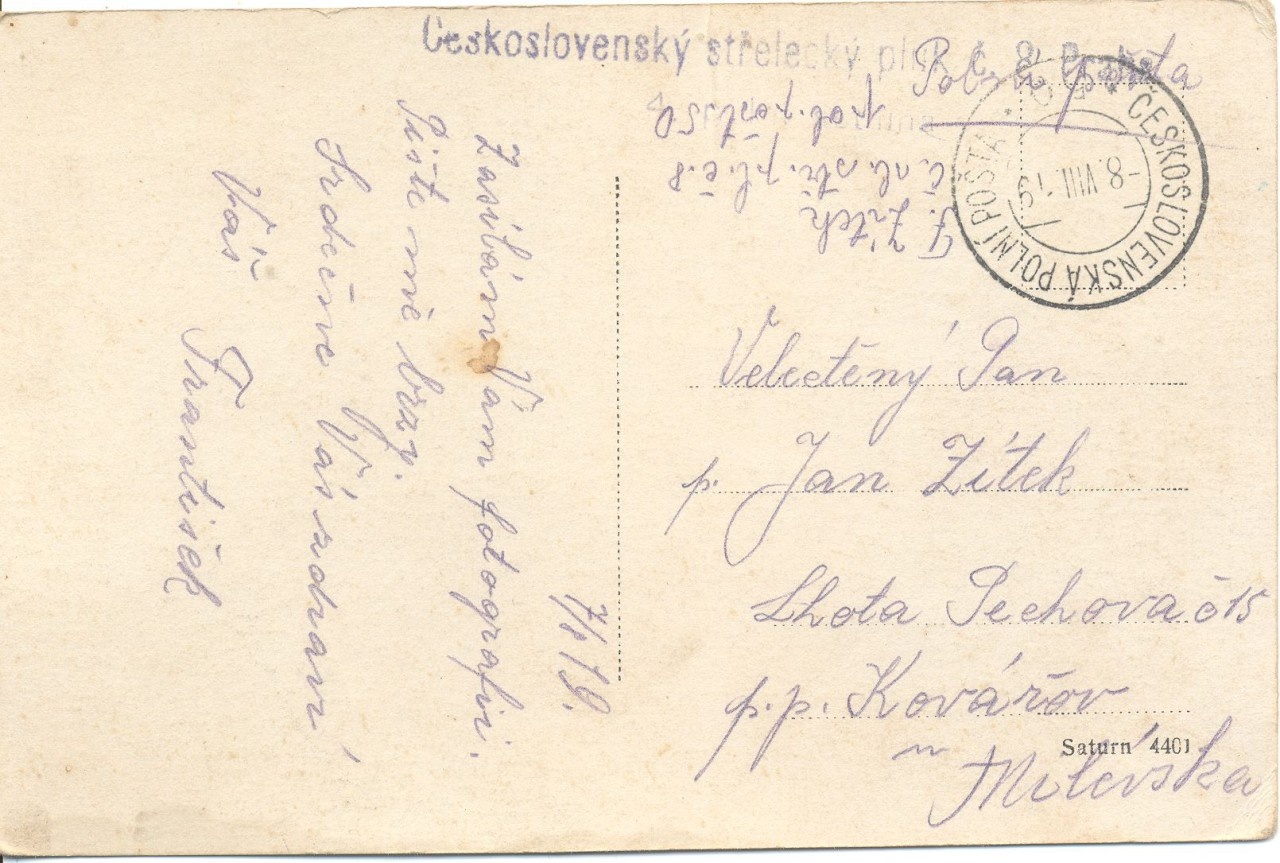 Československý střelecký pluk č. 8
Polní pošta
F. Zítek
č. sl. stř. pl. č. 8
pol. pošt. 50
ČESKOSLOVENSKÁ POLNÍ POŠTA
-8.VIII.19
7/8 19.
Zasílám Vám fotografii.
Pište mně brzy.
Srdečně Vás zdraví
Váš František
Velectěný Pan
p. Jan Zítek
Lhota Pechova č 15
p.p. Kovářov
u Milévska
Saturn 4401